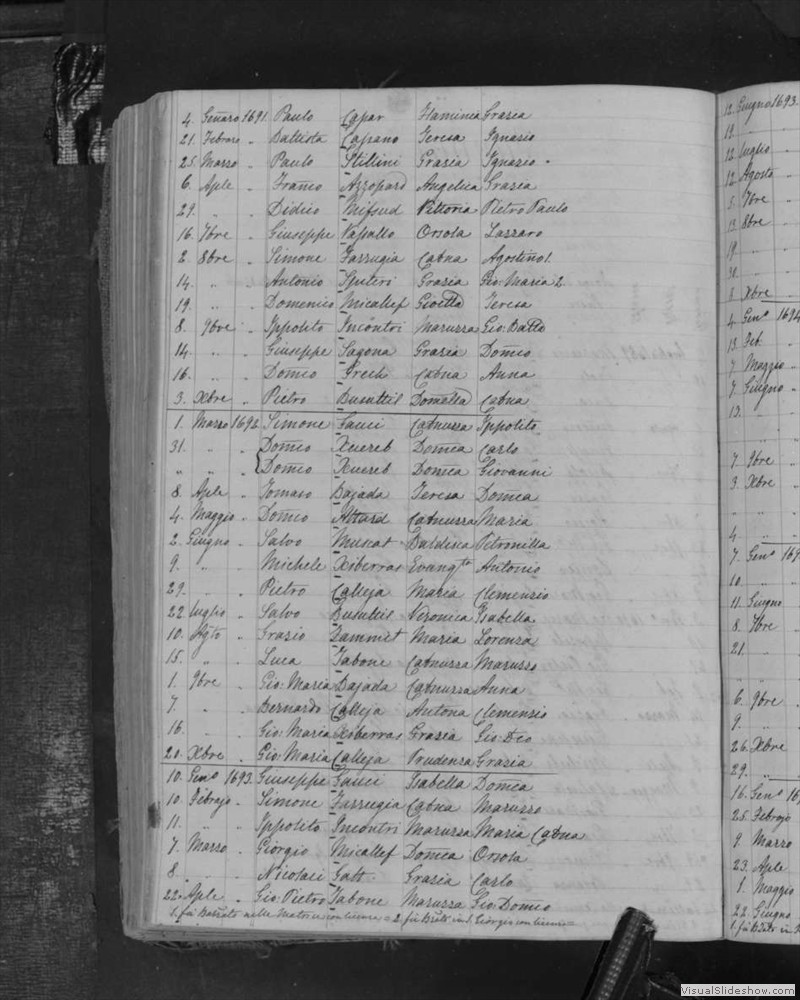 4. Genaro 1691. Paulo Capar Flaminia Grasia
21. Febraro " Battista Capano Teresa Ignasio
25. Marso " Paulo Stellini Grasia Ignazio
6. Aple " Franco Azzopard Angelica Grasia
29. " " Didico Mifsud Vittoria Pietro Paulo
16. 7bre " Giuseppe Vassallo Orsola Lassaro
2. 8bre " Simone Farrugia Catna Agostino 1.
14. " " Antonio Spiteri Grasia Gio: Maria 2.
19. " " Domenico Micallef Gioella Teresa
8. 9bre " Ippolito Incontri Marussa Gio: Batta
14. " " Giuseppe Sagona Grasia Domco
16. " " Domco Grech Catna Anna
3. Xbre " Pietro Busuttil Domella Catna
1. Marso 1692. Simone Gauci Catnussa Ippolito
31. " " Domco Xuereb Domca Carlo
" " " Domco Xuereb Domca Giovanni
8. Aple " Tomaso Bajada Teresa Domca
4. Maggio " Domco Attard Catnussa Maria
2. Giugno " Salvo Muscat Baldina Petronilla
9. " " Michele Xiberras Evangta Antonio
29. " " Pietro Calleja Maria Clemenzio
22. Luglio " Salvo Busuttil Veronica Isabella
10. Agto " Grasio Zammit Maria Lorenza
15. " " Luca Tabone Catnussa Marusso
1. 9bre " Gio: Maria Bajada Catnussa Anna
7. " " Bernardo Calleja Antona Clemenzio
16. " " Gio: Maria Xiberras Grasia Gio: Dco
20. Xbre " Gio: Maria Calleja Prudenza Grasia
10. Geno 1693. Giuseppe Gauci Isabella Domca
10. Febrajo " Simone Farrugia Catna Marusso
11. " " Ippolito Incontri Marussa Maria Catna
7. Marso " Giorgio Micallef Domca Orsola
8. " " Nicolaci Gatt Grasia Carlo
22. Aple " Gio: Pietro Tabone Marussa Gio: Domco
1. fù Battato nella Matrice con licenza = 2. fù Battato in S. Giorgio con licenza =
12. Giugno 1693.
12. "
12. Luglio
12. Agosto
5. 7bre
13. 8bre
19.
30.
5. Xbre
4. Geno 1694
13. Feb.
7. Maggio
7. Giugno
13.
7. 9bre
3. Xbre
4.
7. Geno 169
10.
11. Giugno
8. 7bre
21.
6. 9bre
9.
26. Xbre
29.
16. Geno 16
25. Febrajo
9. Marzo
23. Aple
1. Maggio
22. Giugno
VisualSlideshow.com